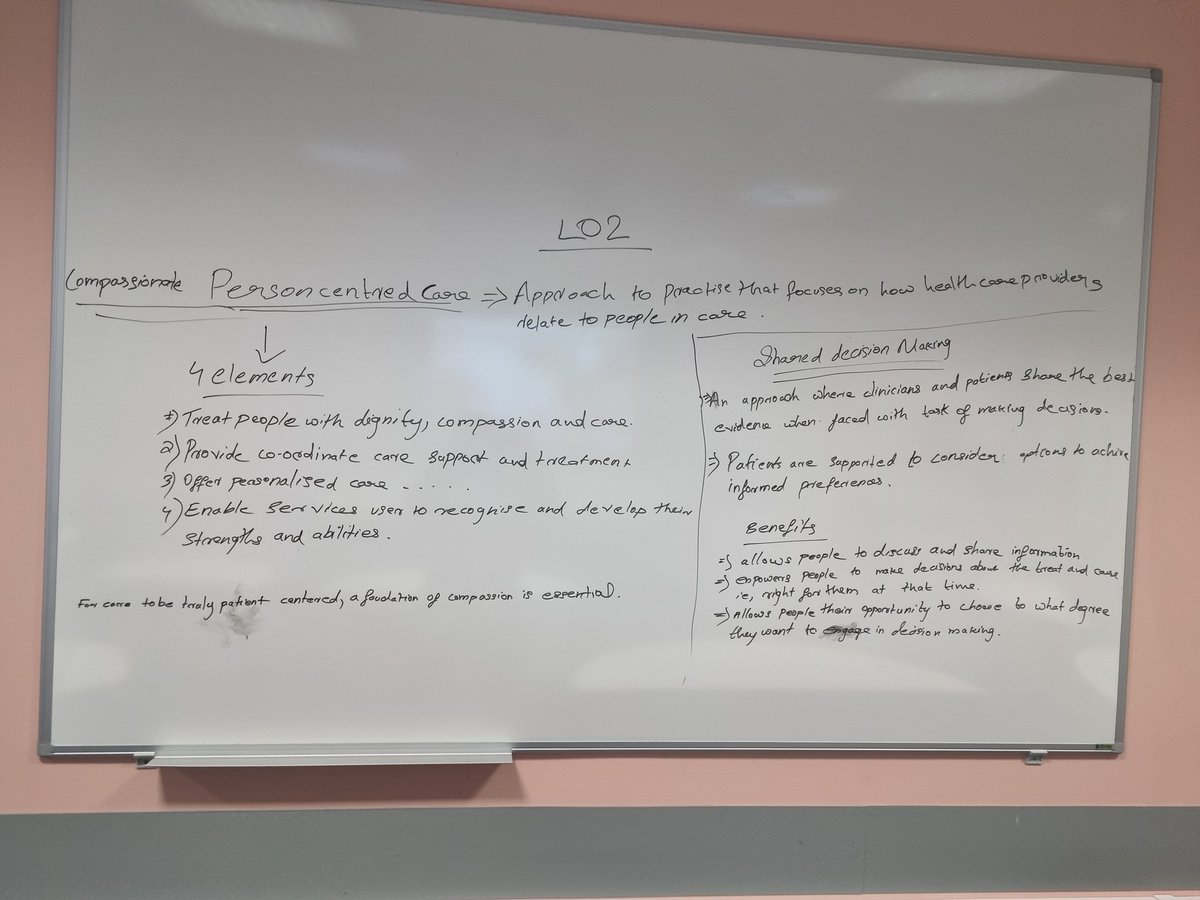 LO2
Compassionate Person centred Care => Approach to practise that focuses on how health care providers
relate to people in care.
4 elements
1) Treat people with dignity, compassion and care.
2) Provide co-ordinate care support and treatment
3) Offer personalised care . . . . . .
4) Enable services user to recognise and develop their
strengths and abilities.
For care to be truly patient centered, a foudation of compassion is essential.
Shared decision Making
=> An approach where clinicians and patients share the best
evidence when faced with task of making decisions.
=> Patients are supported to consider options to achive
informed preferences.
Benefits
=> allows people to discuss and share information
=> empowers people to make decisions about the treat and care
ie, right for them at that time.
=> Allows people their opportunity to choose to what degree
they want to engage in decision making.